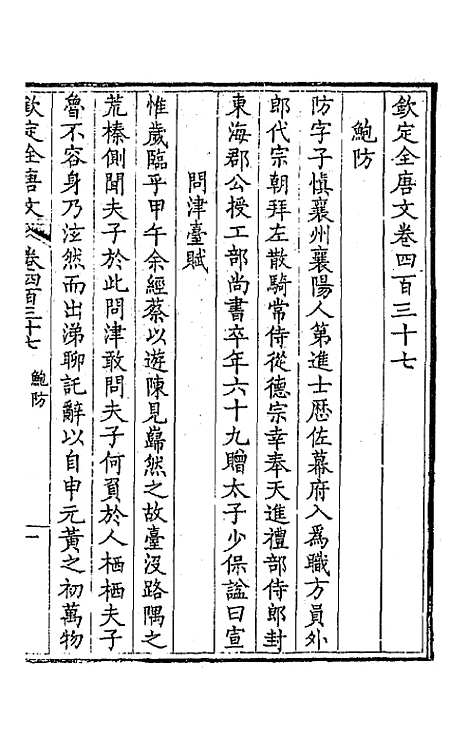 欽定全唐文卷四百三十七
鮑防
防字子愼襄州襄陽人第進士歷佐幕府入爲職方員外
郎代宗朝拜左散騎常侍從德宗幸奉天進禮部侍郎封
東海郡公授工部尚書卒年六十九贈太子少保諡曰宣
問津臺賦
惟歲臨乎甲午余經蔡以遊陳見巋然之故臺沒路隅之
荒榛側聞夫子於此問津敢問夫子何負於人栖栖夫子
魯不容身乃泫然而出涕聊託辭以自申元黃之初萬物
欽定全唐文 卷四百三十七 鮑防 一